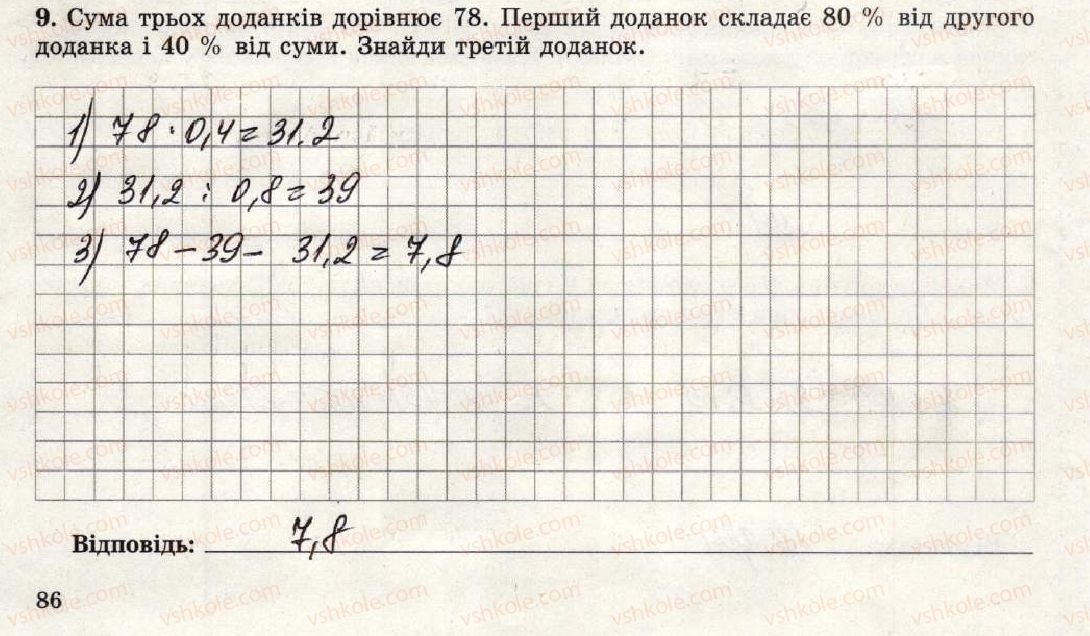 9. Сума трьох доданків дорівнює 78. Перший доданок складає 80 % від другого
доданка і 40 % від суми. Знайди третій доданок.
1) 78 · 0,4 = 31,2
2) 31,2 : 0,8 = 39
3) 78 – 39 – 31,2 = 7,8
Відповідь: 7,8
86